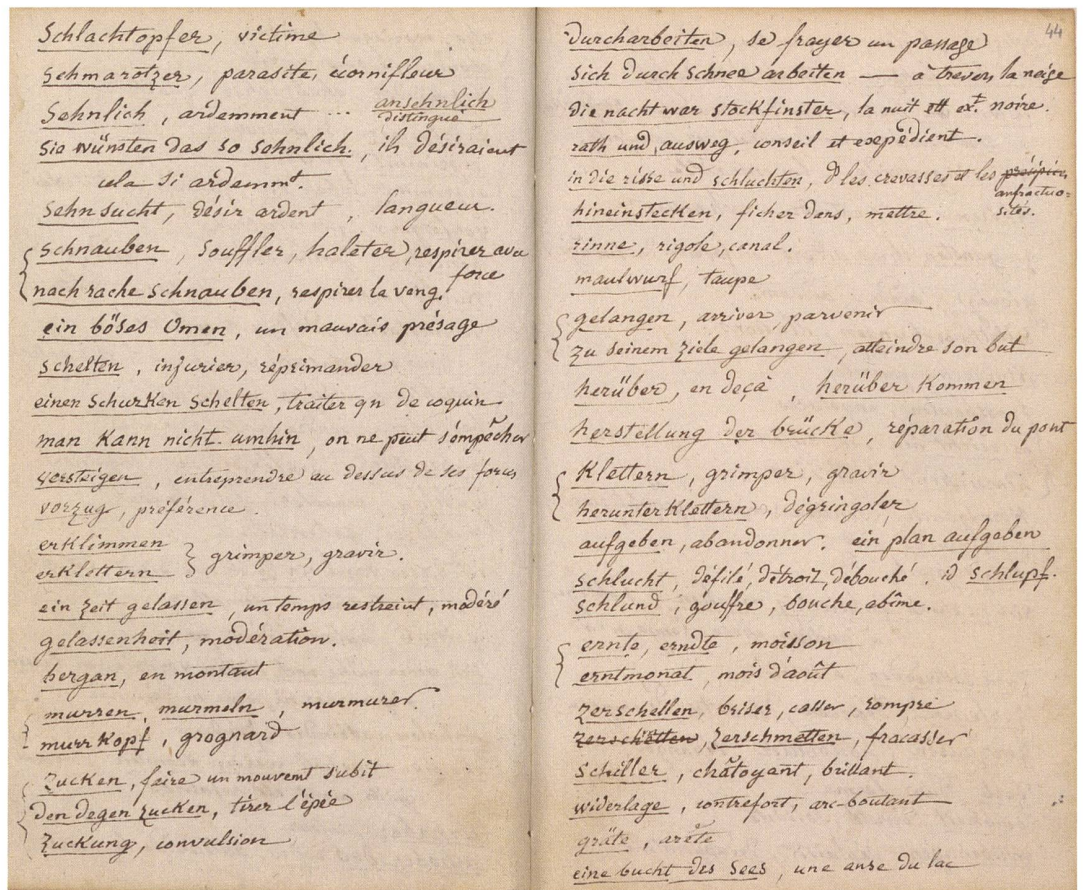 Schlachtopfer, victime
Schmarotzer, parasite, écornifleur
Sehnlich, ardemment ... ansehnlich
distingué
Sie wünsten das so sehnlich., ils désiraient
cela si ardemmt.
Sehnsucht, désir ardent, langueur.
schnauben, souffler, haleter, respirer avec
force
nach rache schnauben, respirer la veng.
ein böses Omen, un mauvais présage
schelten, injurier, réprimander
einen Schurken schelten, traiter qn de coquin
man kann nicht umhin, on ne peut s'empêcher
versteigen, entreprendre au dessus de ses forces
vorzug, préférence.
erklimmen
erklettern } grimper, gravir.
ein zeit gelassen, un temps restreint, modéré
gelassenheit, modération.
bergan, en montant
murren, murmeln, murmurer.
murrkopf, grognard
zucken, faire un mouvemt subit
den degen zucken, tirer l'épée
zuckung, convulsion
44
durcharbeiten, se frayer un passage
sich durch schnee arbeiten — à travers la neige
die nacht war stockfinster, la nuit ett ext noire.
rath und ausweg, conseil et exepédient.
in die risse und schluchten, ds les crevasses et les
anfractuo-
sités.
hineinstecken, ficher dans, mettre.
rinne, rigole, canal.
maulwurf, taupe
gelangen, arriver, parvenir
zu seinem ziele gelangen, atteindre son but
herüber, en deçà, herüber kommen
herstellung der brücke, réparation du pont
klettern, grimper, gravir
herunterklettern, dégringoler
aufgeben, abandonner. ein plan aufgeben
schlucht, défilé, détroit, débouché. id schlupf.
schlund, gouffre, bouche, abîme.
ernte, erndte, moisson
erntmonat, mois d'août
zerschellen, briser, casser, rompre
zerschetten, zerschmetten, fracasser
schiller, châtoyant, brillant.
widerlage, contrefort, arc-boutant
gräte, arête
eine bucht des sees, une anse du lac